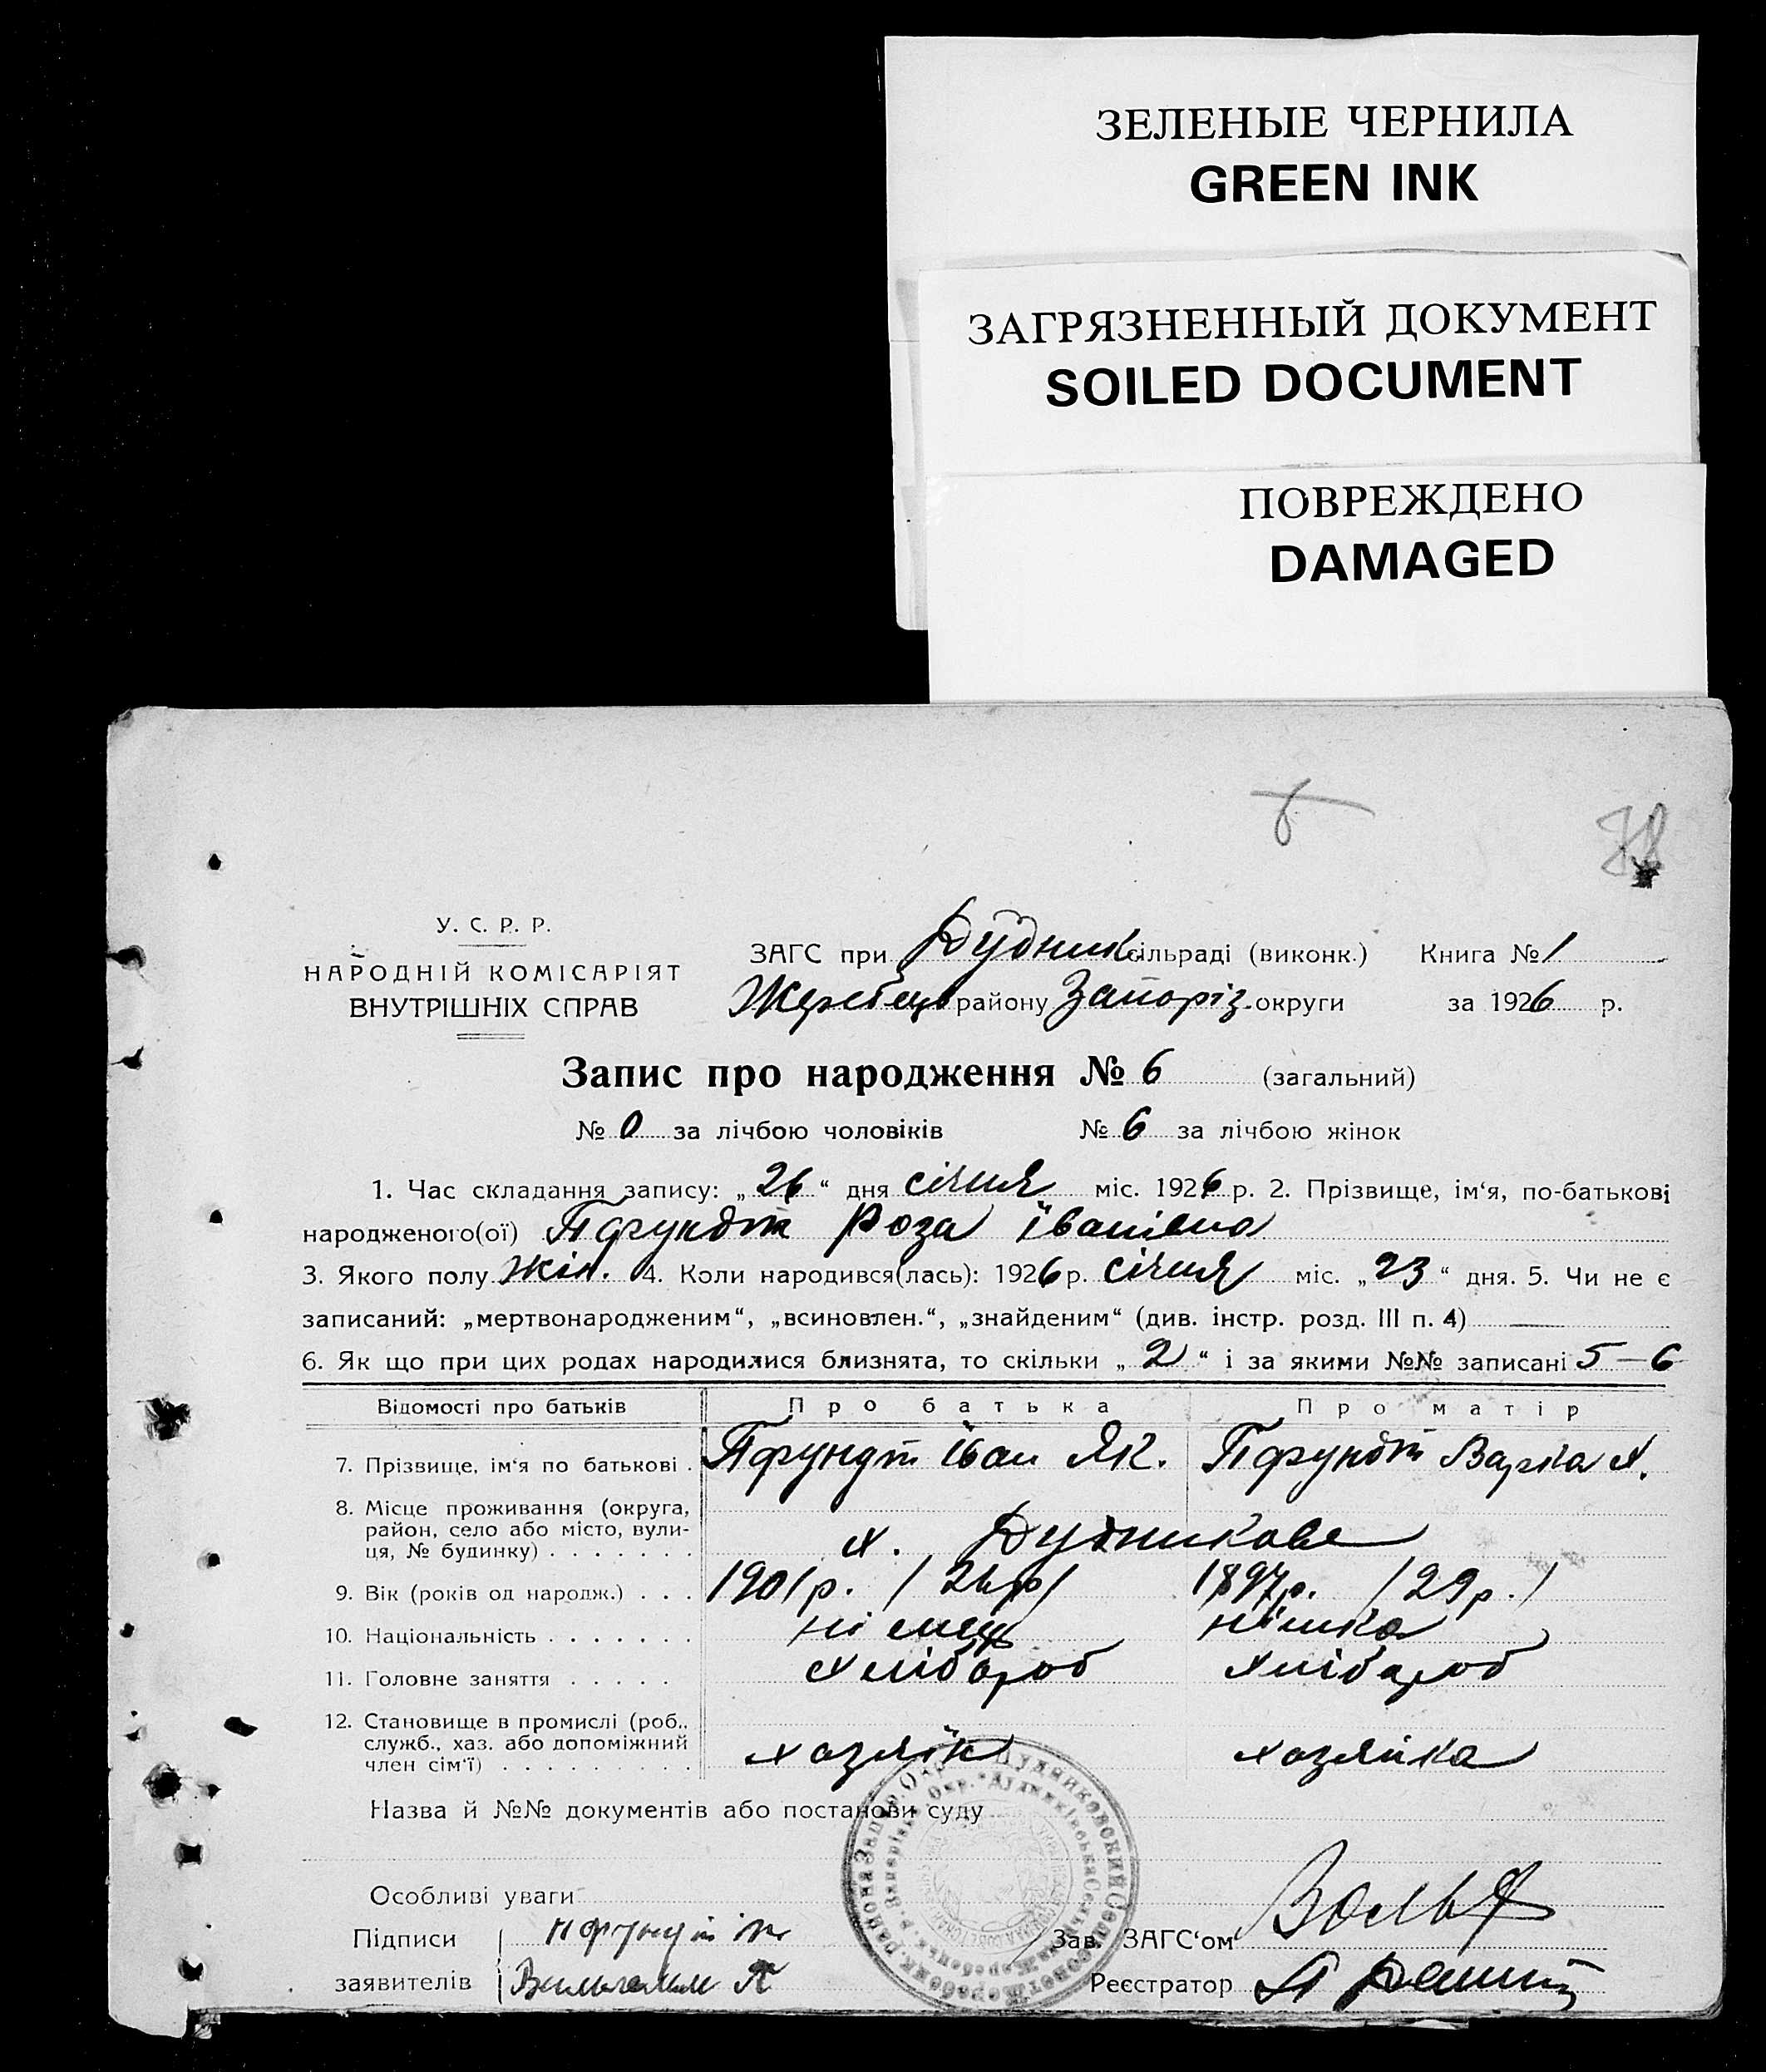 ЗЕЛЕНЫЕ ЧЕРНИЛА
GREEN INK
ЗАГРЯЗНЕННЫЙ ДОКУМЕНТ
SOILED DOCUMENT
ПОВРЕЖДЕНО
DAMAGED
У. С. Р. Р.
НАРОДНІЙ КОМІСАРІЯТ
ВНУТРІШНІХ СПРАВ
ЗАГС при Дудник. сільраді (виконк.) Книга № 1
Жеребец. району Запоріз. округи за 1926 р.
Запис про народження № 6 (загальний)
№ 0 за лічбою чоловіків № 6 за лічбою жінок
1. Час складання запису: „26“ дня січня міс. 1926 р. 2. Прізвище, ім‘я, по-батькові
народженого(ої) Пфундт Роза Іванівна
3. Якого полу жін. 4. Коли народився(лась): 1926 р. січня міс. „23“ дня. 5. Чи не є
записаний: „мертвонародженим“, „всиновлен.“, „знайденим“ (див. інстр. розд. III п. 4)
6. Як що при цих родах народилися близнята, то скільки „2“ і за якими №№ записані 5—6
Відомості про батьків Про батька Про матір
7. Прізвище, ім‘я по батькові . Пфундт Іван Як. Пфундт Варка
8. Місце проживання (округа,
район, село або місто, вули-
ця, № будинку) . . . . . . . х. Дудникове
9. Вік (років од народж.) . . . 1901р. 1897р. /29р./
10. Національність . . . . . . . німець німка
11. Головне заняття . . . . . хлібороб хлібороб
12. Становище в промислі (роб.,
служб., хаз. або допоміжний
член сім‘ї) . . . . . . . . . хазяїн хазяйка
Назва й №№ документів або постанови суду
Особливі уваги
Підписи Пфундт
Зав. ЗАГС‘ом Вольф
заявителів
Реєстратор